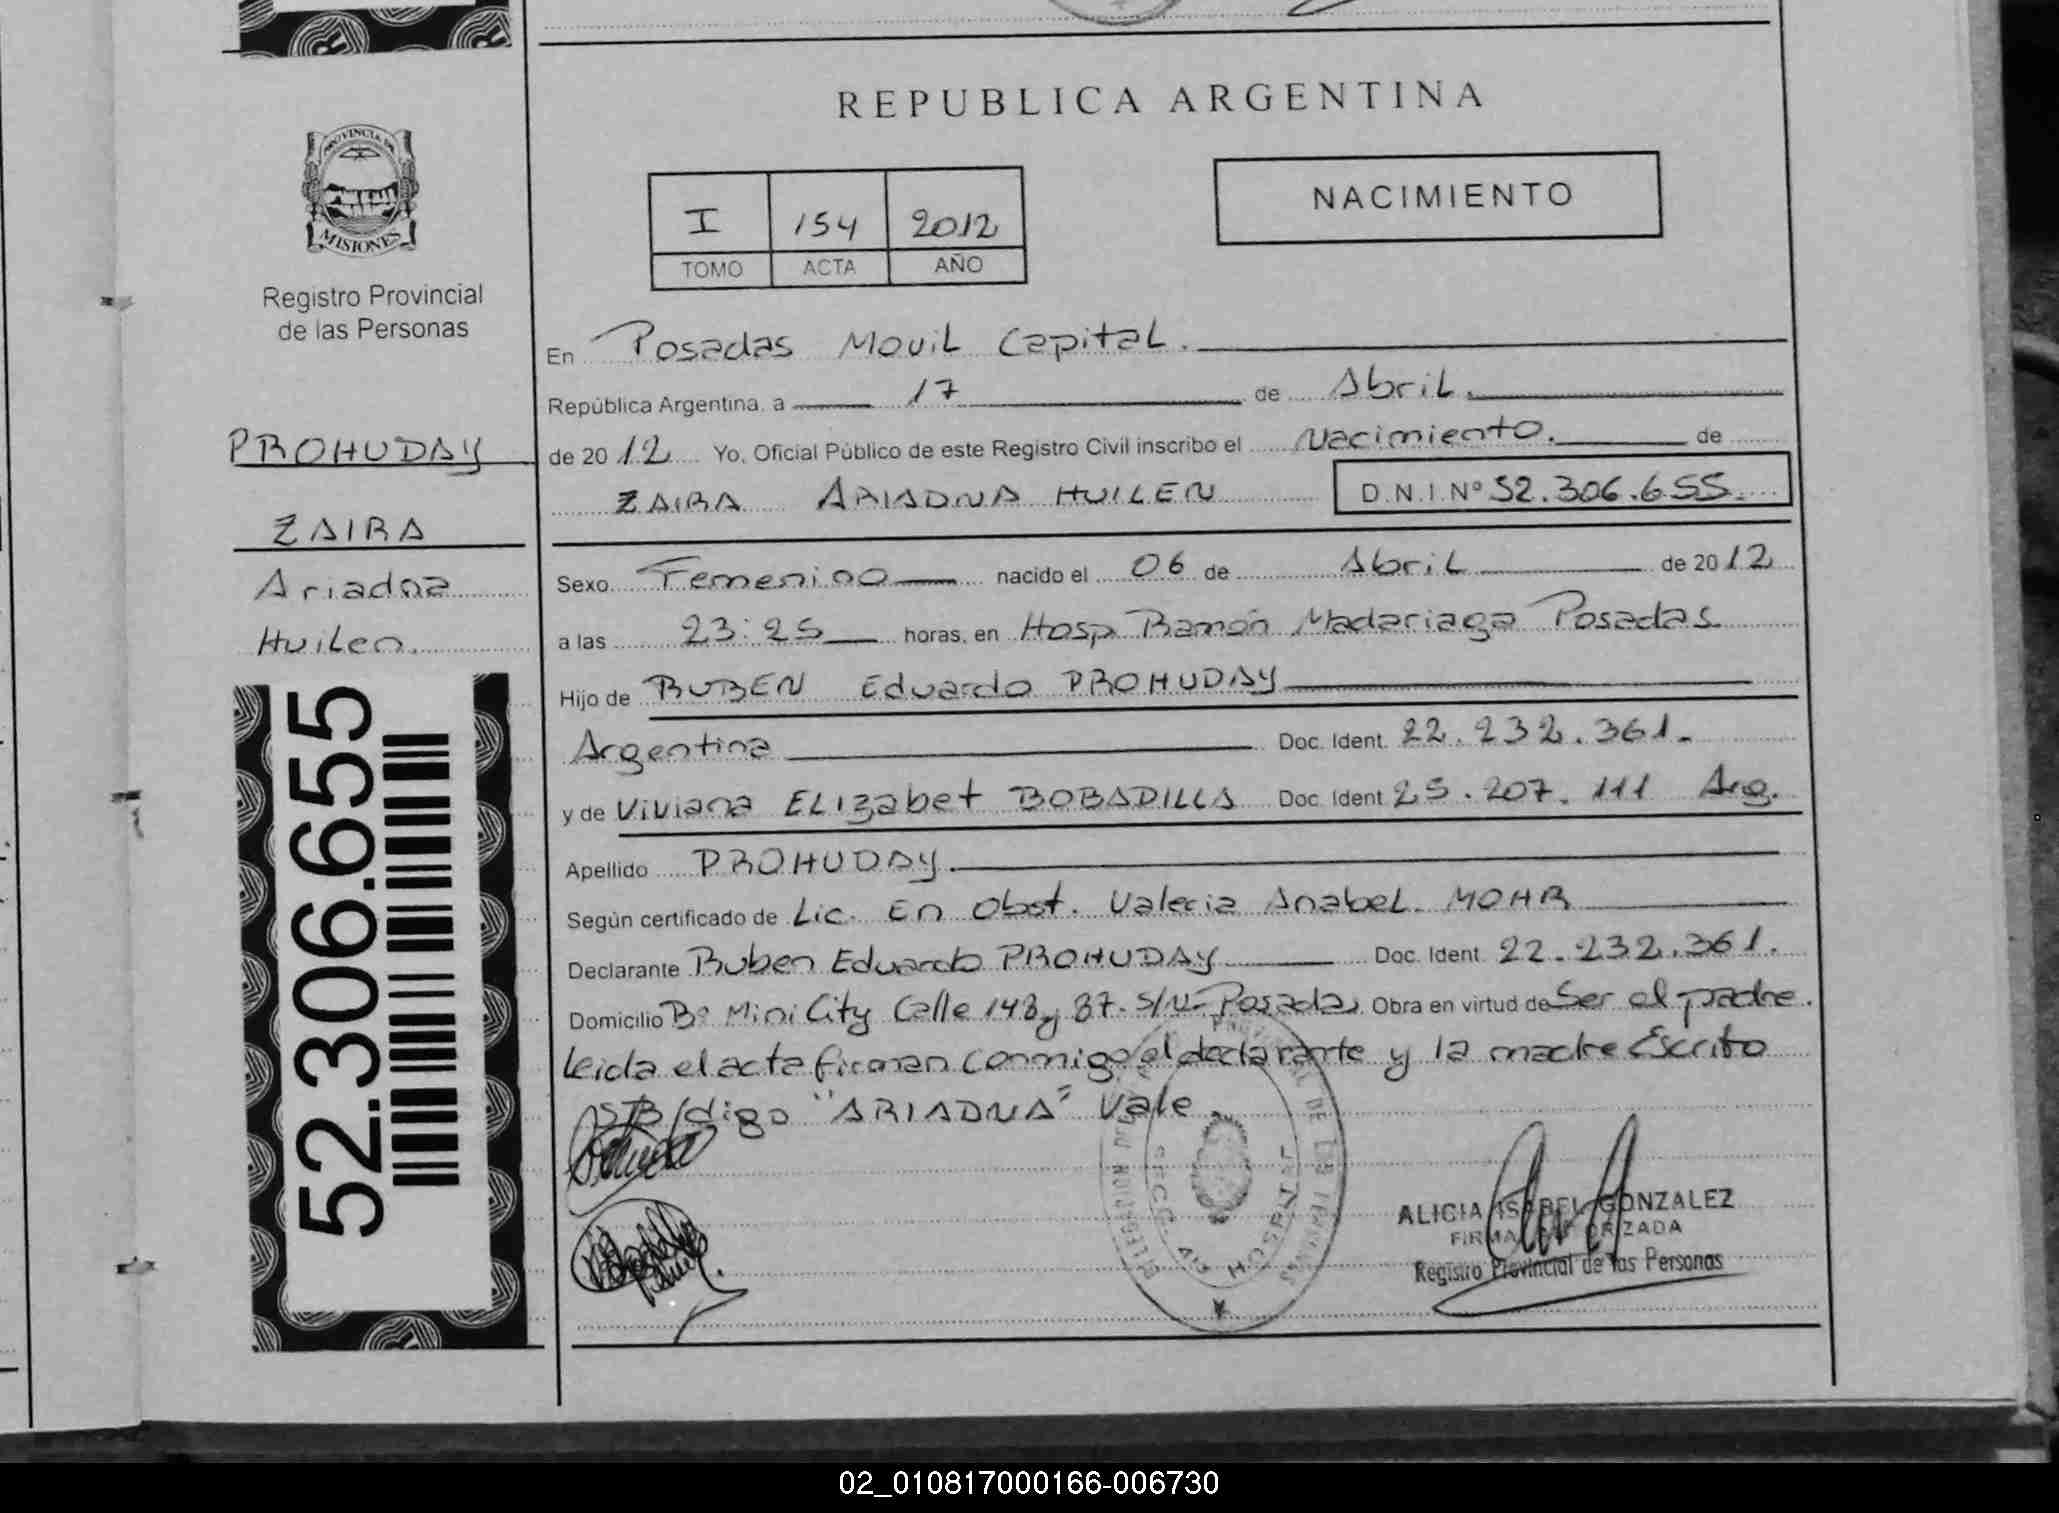 PROVINCIA DE
MISIONES
Registro Provincial
de las Personas
PROHUDAY
ZAIRA
Ariadna
Huilen.
52.306.655
REPUBLICA ARGENTINA
I 154 2012
TOMO ACTA AÑO
NACIMIENTO
En Posadas Movil Capital.
República Argentina, a 17 de Abril.
de 2012 Yo, Oficial Público de este Registro Civil inscribo el Nacimiento. de
ZAIRA ARIADNA HUILEN D.N.I.Nº 52.306.655.
Sexo Femenino nacido el 06 de Abril de 2012
a las 23:25 horas, en Hosp Ramón Madariaga Posadas
Hijo de RUBEN Eduardo PROHUDAY
Argentina Doc. Ident. 22.232.361.
y de Viviana ELIzabet BOBADILLA Doc. Ident 25.207.111 Arg.
Apellido PROHUDAY.
Según certificado de Lic. En Obst. Valeria Anabel. MOHR
Declarante Ruben Eduardo PROHUDAY Doc. Ident. 22.232.361.
Domicilio Bº Mini City Calle 143 y 87. S/N- Posadas. Obra en virtud de Ser el padre.
leida el acta firman conmigo el declarante y la madre Escrito
S/B/digo "ARIADNA" Vale.
ALICIA ISABEL GONZALEZ
FIRMA AUTORIZADA
Registro Provincial de las Personas
02_010817000166-006730